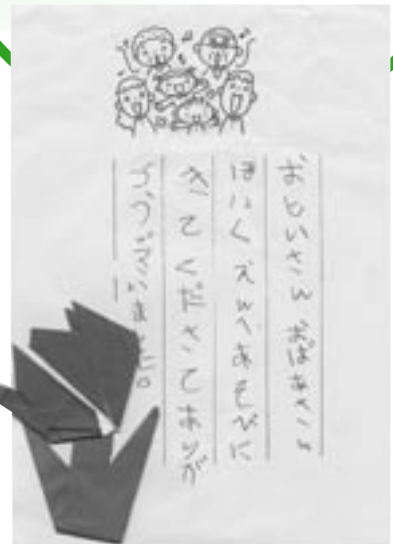 おじいさん おばあさん
ほいくえんへあそびに
きてくださてありが
とうございました。